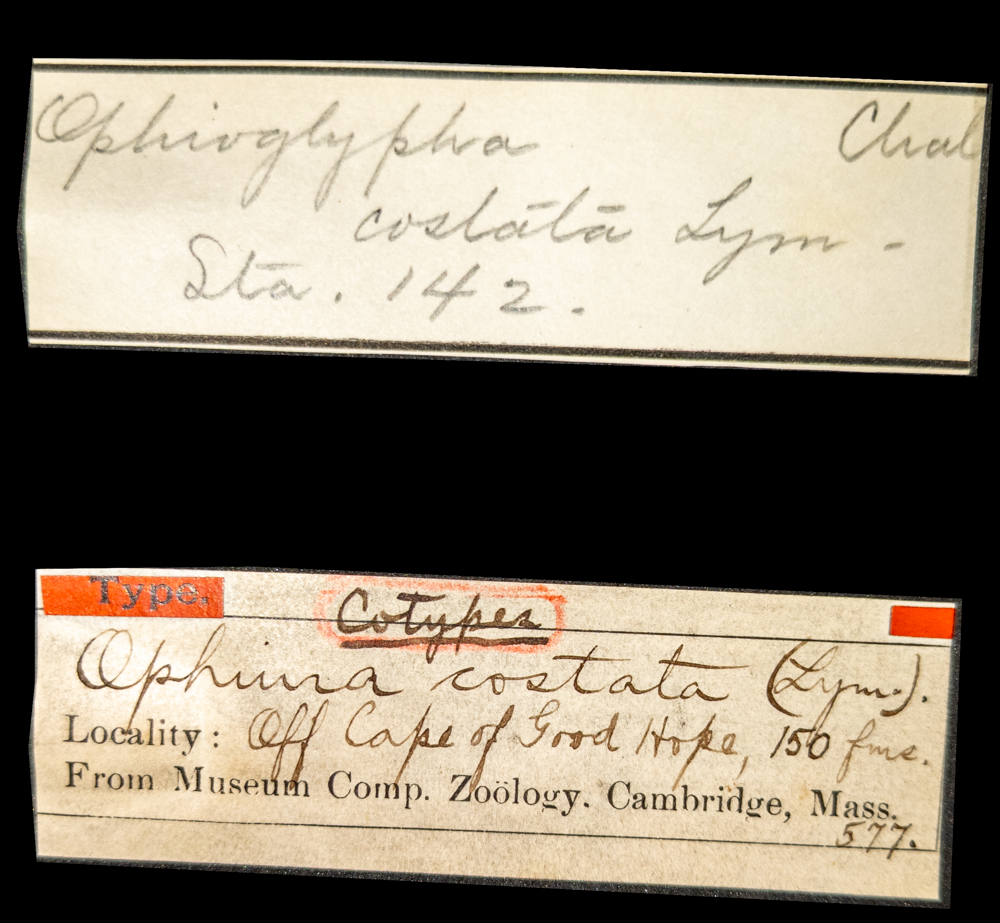 Ophioglypha Chal
costata Lym -
Sta. 142.
Type. Cotypes
Ophiura costata (Lym.).
Locality: Off Cape of Good Hope, 150 fms.
From Museum Comp. Zoölogy. Cambridge, Mass.
577.